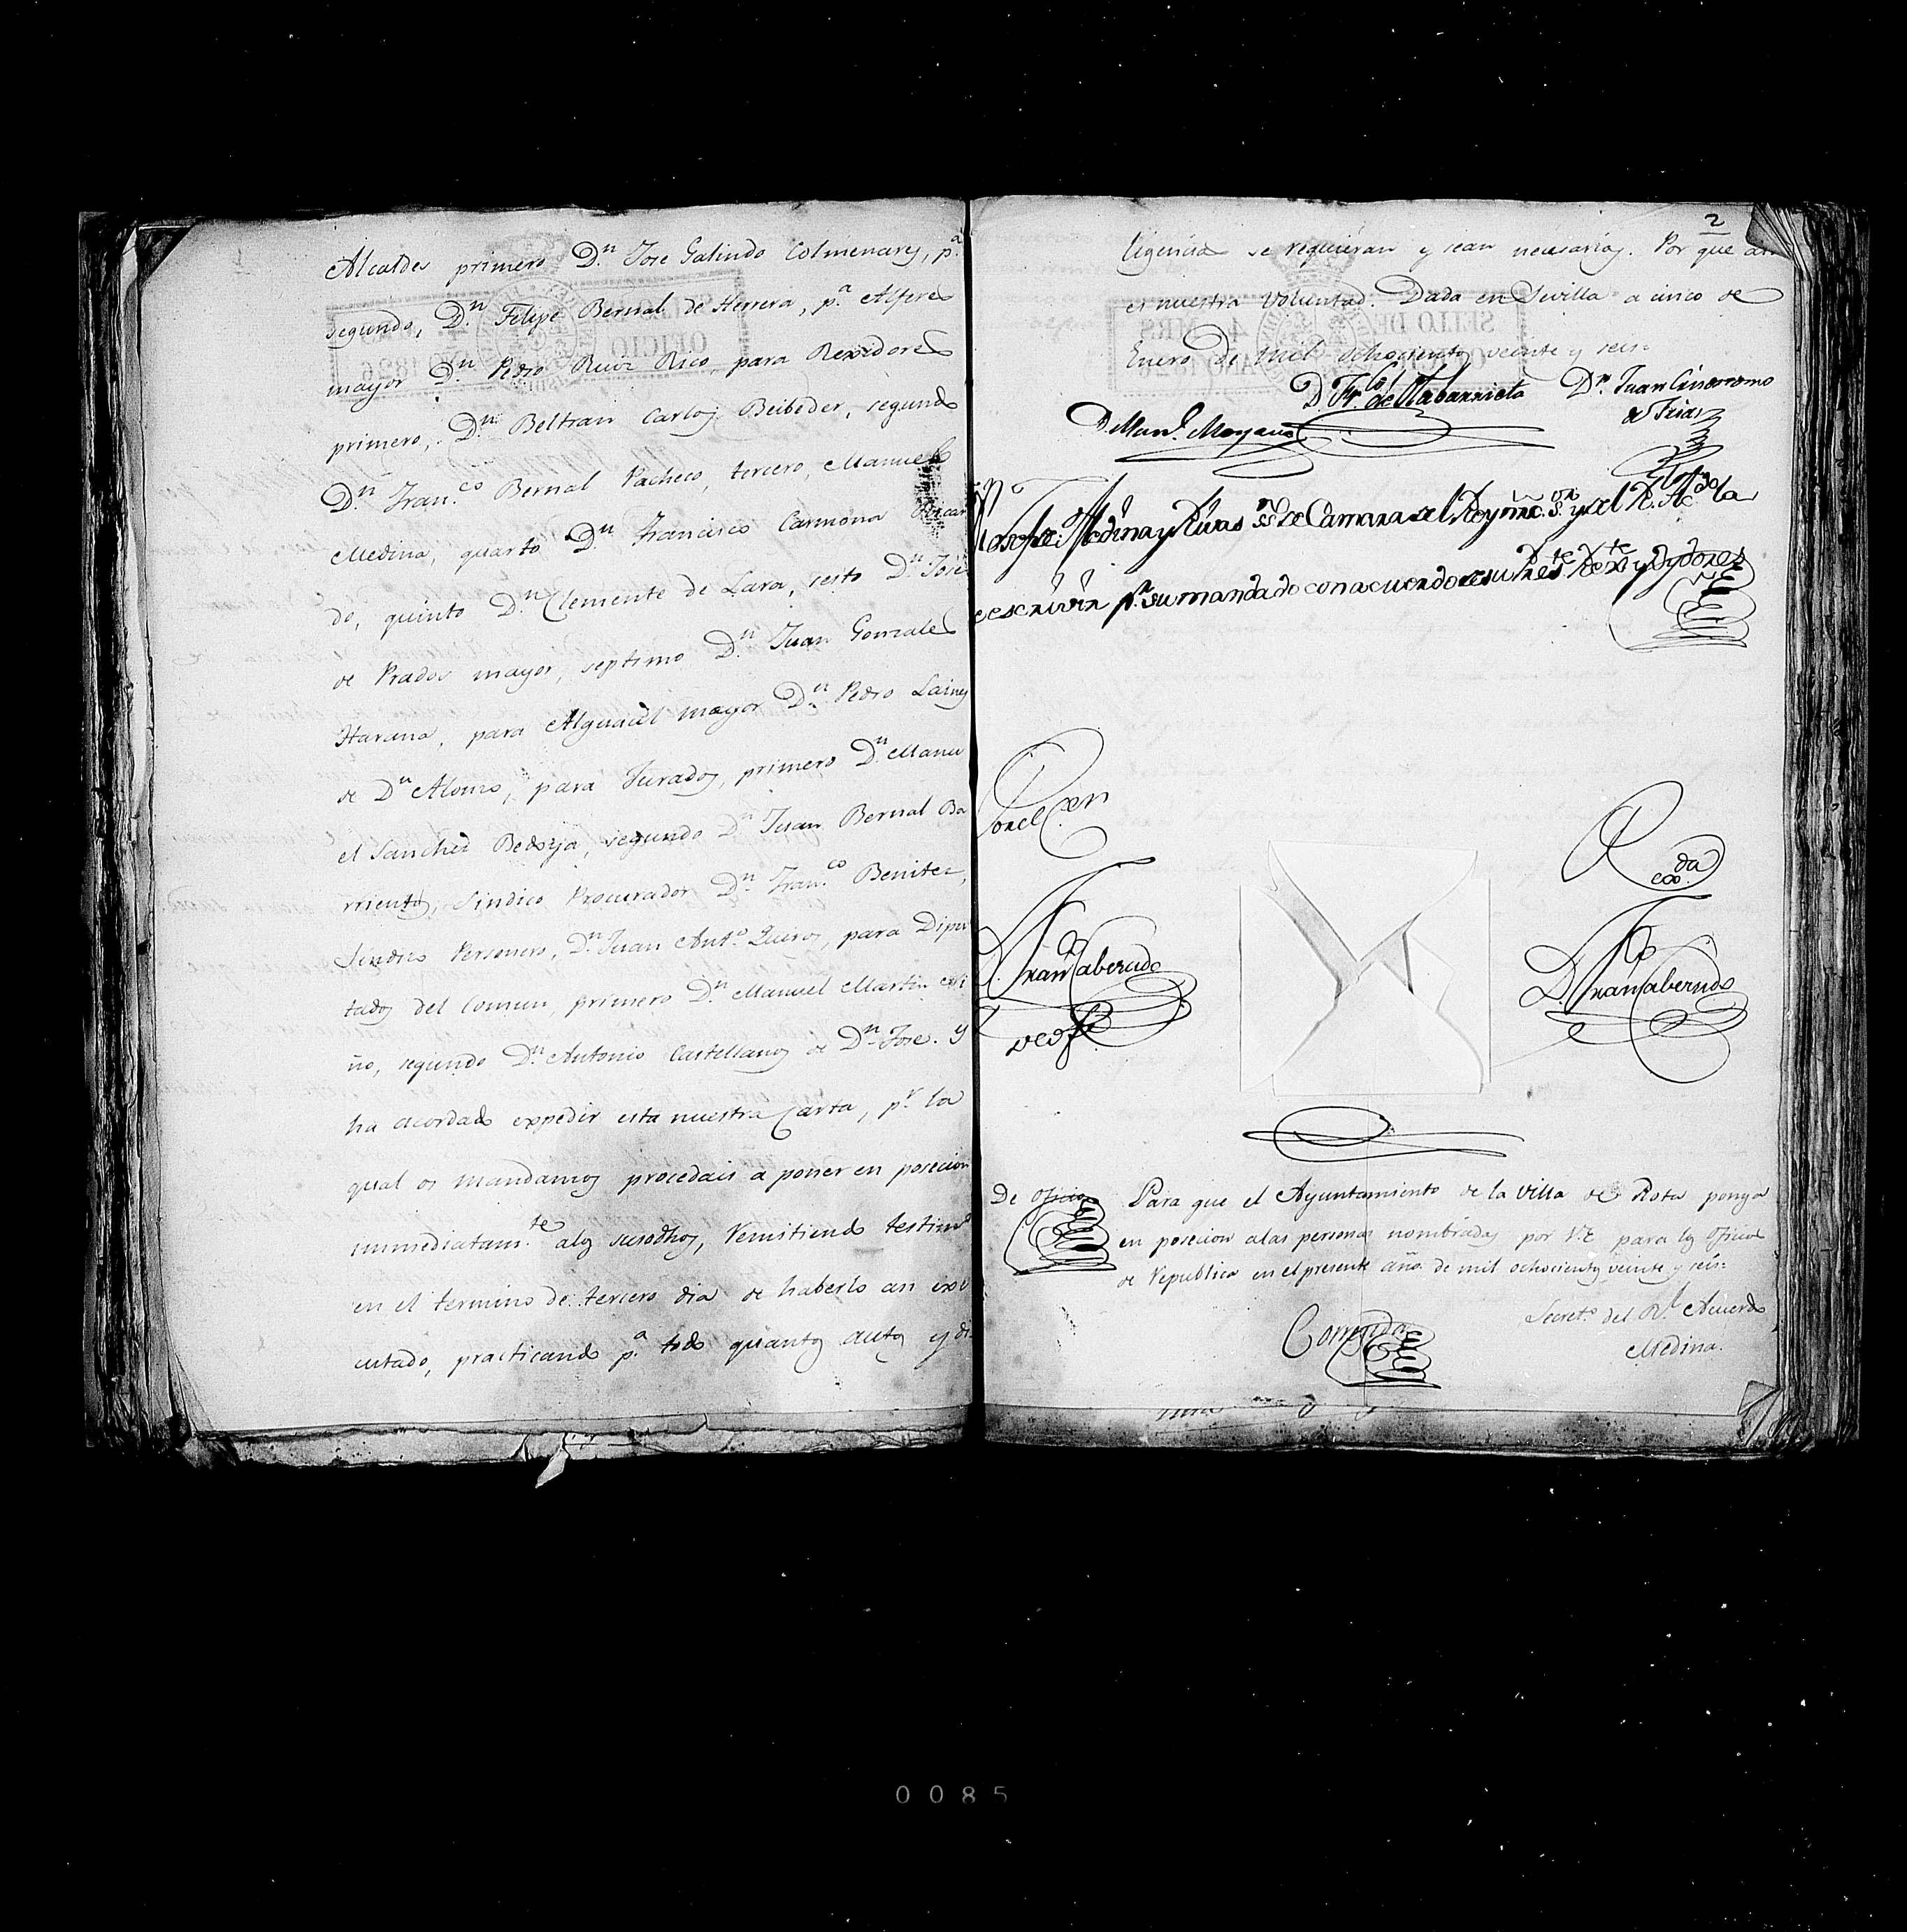 Alcaldes primero D.n Jose Galindo Colmenares, p.a
segundo, D.n Felipe Bernal de Herrera, p.a Alferes
mayor D.n Pedro Ruiz Rico, para Rexidores
primero, D.n Beltran Carlos Beibeder, segundo
D.n Fran.co Bernal Pacheco, tercero, Manuel
Medina, quarto D.n Francisco Carmona
do, quinto D.n Clemente de Lara, sesto D.n Jose
de Prados mayor, septimo D.n Juan Gonzales
Harana, para Alguacil mayor D.n Pedro Laines
de D.n Alonso, para Jurados, primero D.n Manu
el Sanches Bedoya, segundo D.n Juan Bernal Ba
rriento, Sindico Procurador D.n Fran.co Benites,
Sindico Personero, D.n Juan Ant.o Quiros, para Dipu
tados del Comun, primero D.n Manuel Martin
ño, segundo D.n Antonio Castellanos de D.n Jose. y
ha acordado expedir esta nuestra Carta, p.r la
qual os mandamos procedais a poner en posecion
immediatam.te alos susodhos, Remitiendo testim.o
en el termino de tercero dia de haberlo asi exe
cutado, practicando p.a todo quantos autos y di
2
ligencias se requieran y sean necesarias. Por que asi
es nuestra Voluntad. Dada en Sevilla a cinco de
Enero de mil ochocientos veinte y seis=
SELLO DE OFICIO 4 MRS AÑO 1826
D. Fr.co de Olabarrieta
D.n Juan Cinsoromo
de Frias
D Man.l Moyano
Josef de Medina y Rivas SS.no de Camara del Rey nro. S.or y del R. Ac.do la
e escrivir p.r su mandado con acuerdo de su Pres.te Reg.te y Oydores
Por el Can
R
da
D. Fran.co Taberndo
D. Fran.co Taberndo
De oficio
Para que el Ayuntamiento de la Villa de Rota ponga
en posecion alas personas nombradas por V.E para los Oficios
de Republica en el presente año de mil ochocientos veinte y seis=
Secret.o del R.l Acuerdo
Medina.
Corregida
0085